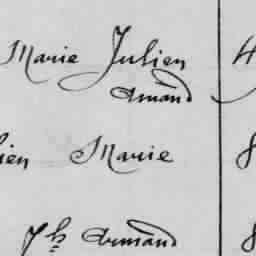 Marie Julien 4
Amand
ien Marie 8
Jh Armand 8